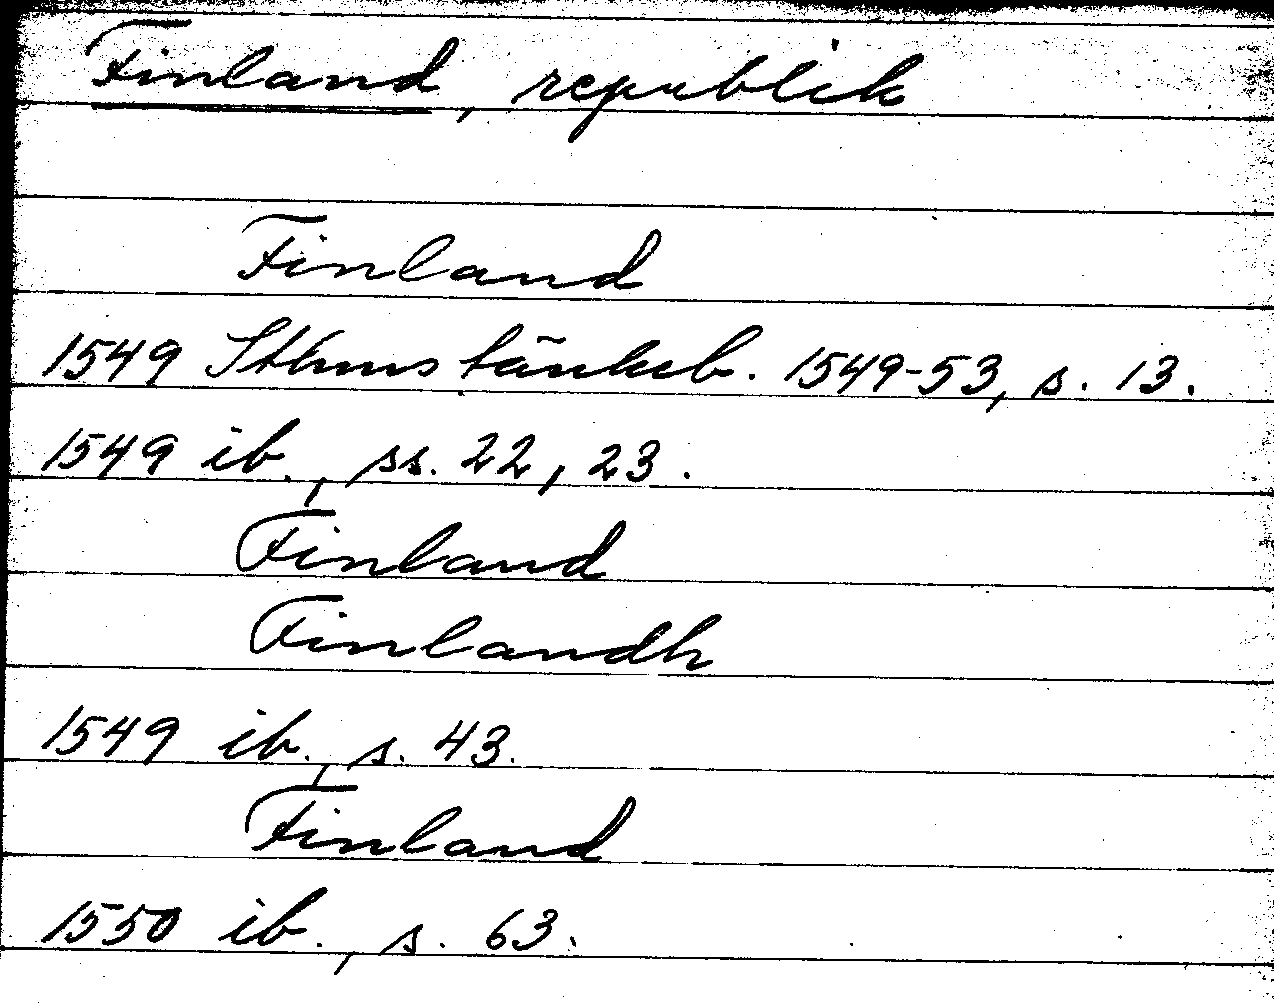 Finland, republik
Finland
1549 Sthms tänkeb. 1549-53, s. 13.
1549 ib., ss. 22, 23.
Finland
Finlandh
1549 ib., s. 43.
Finland
1550 ib., s. 63.